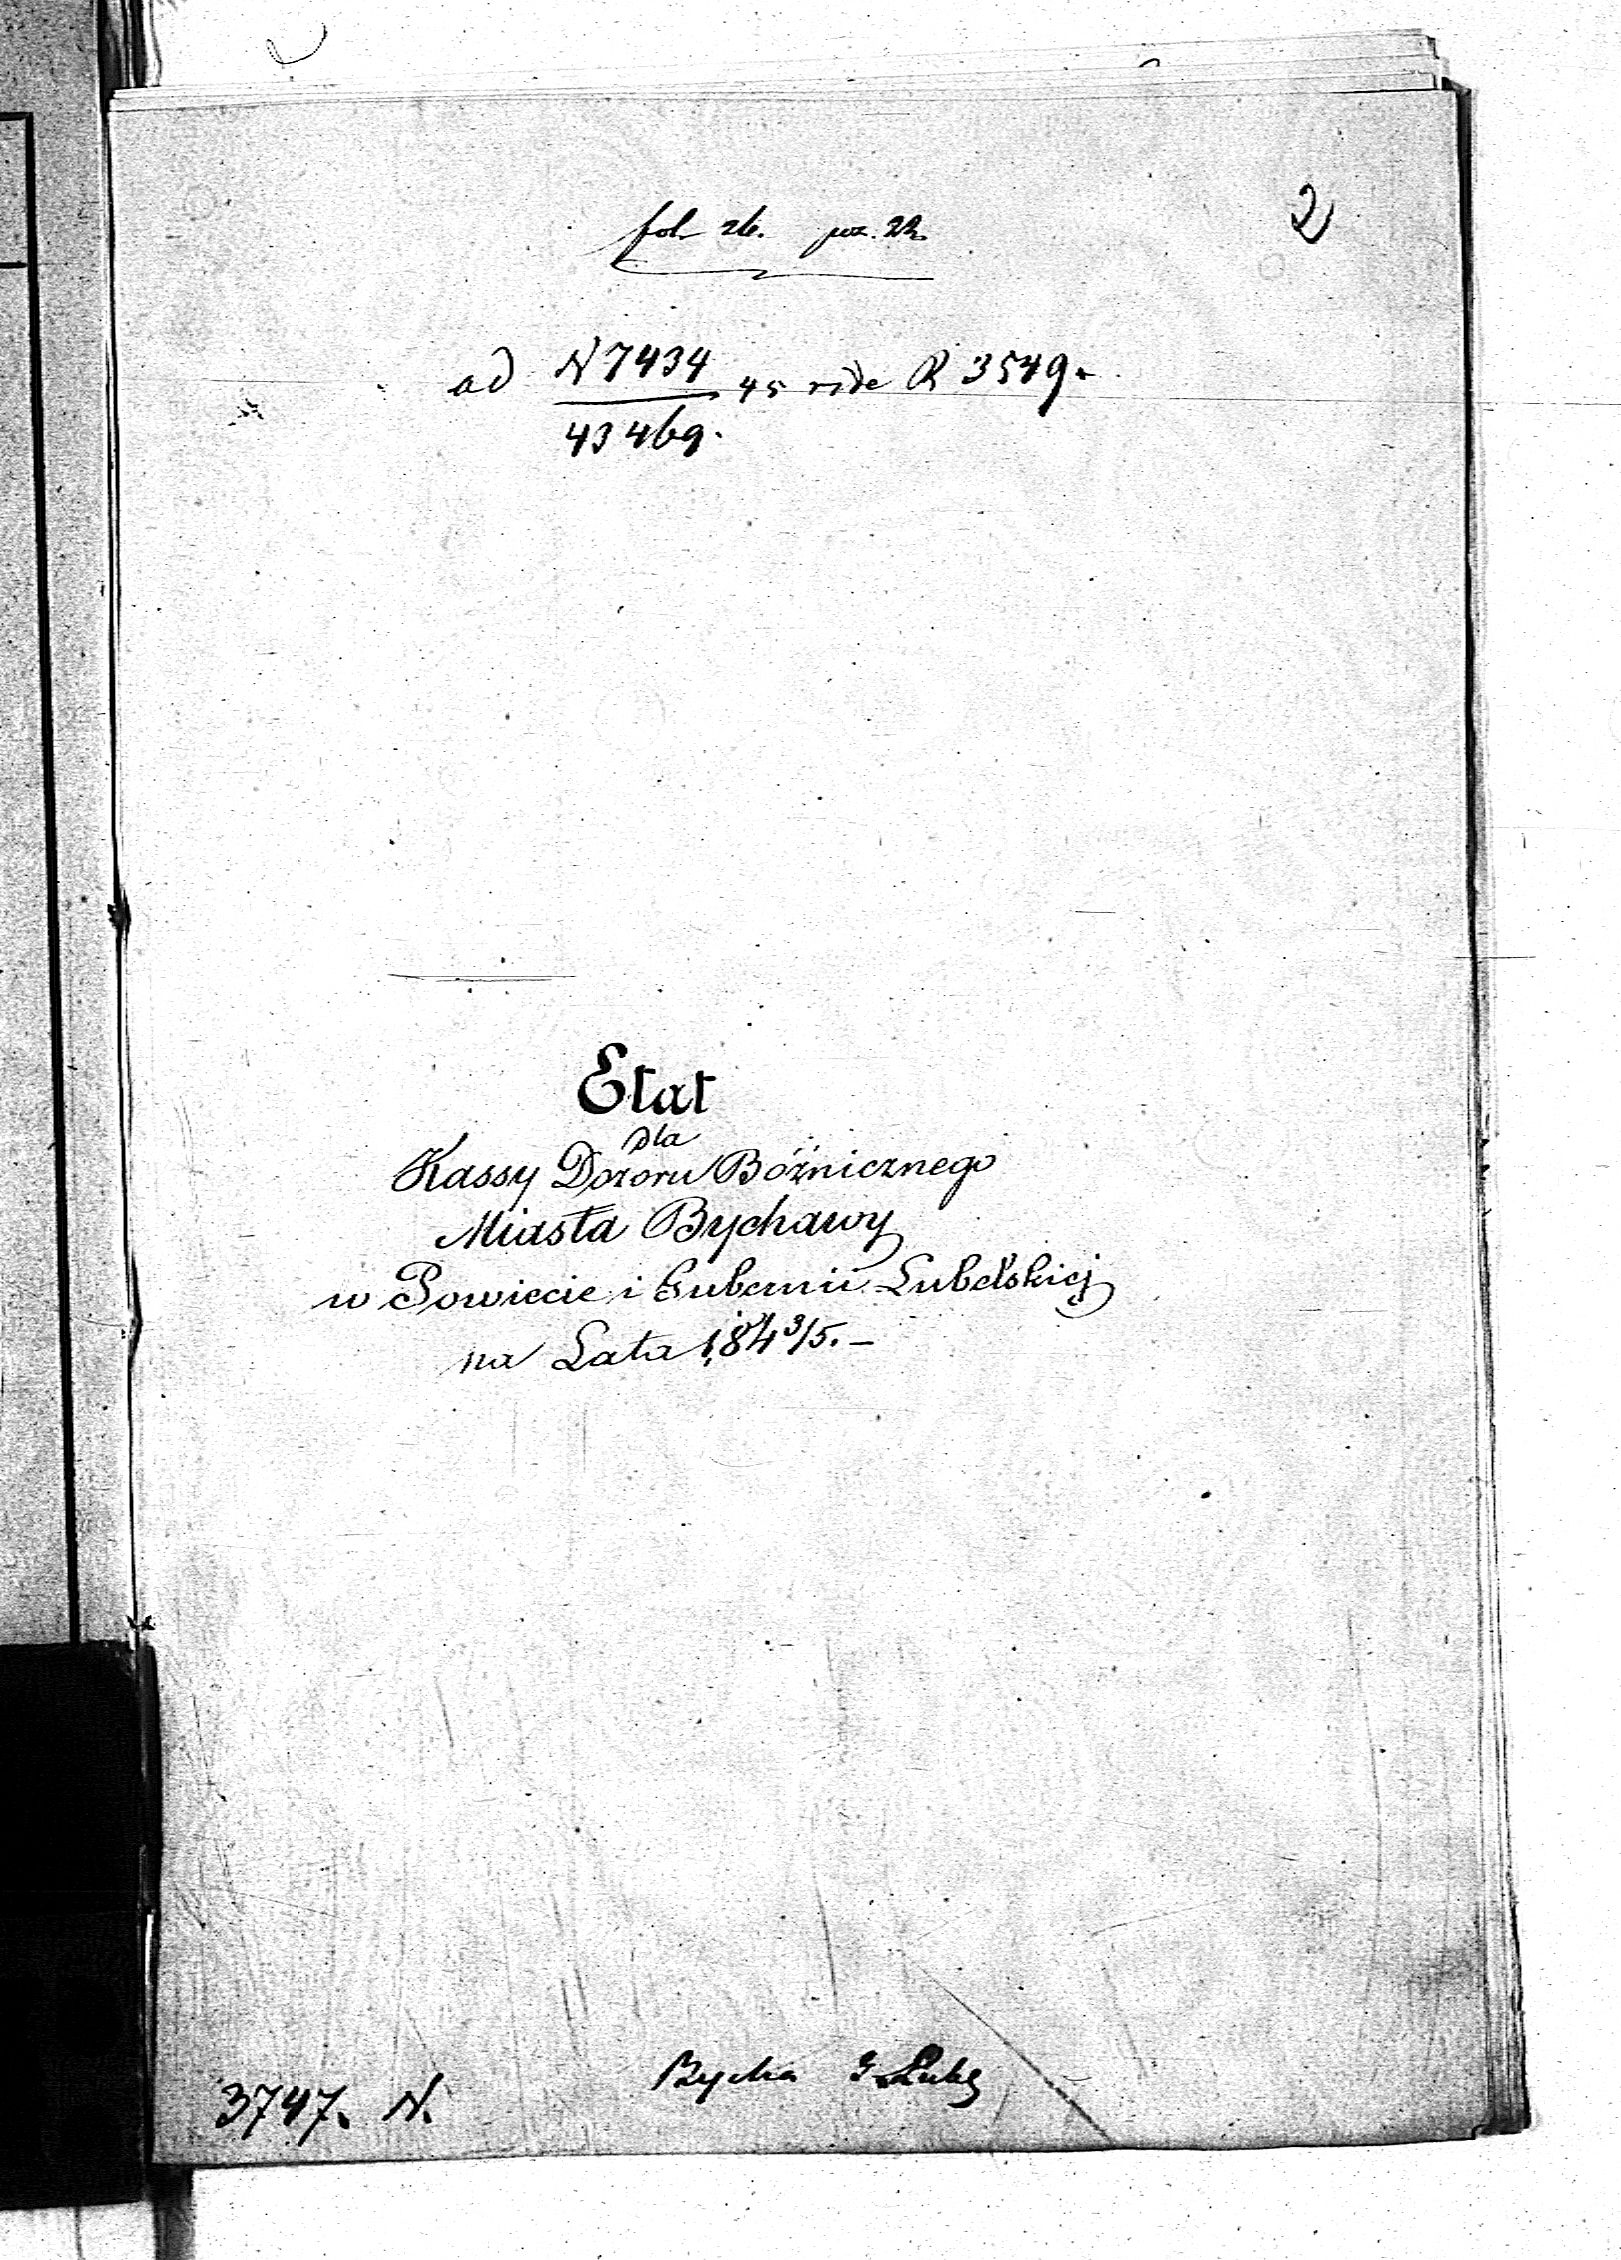 2
fol. 26. poz. 22
ad N 7434 45 vide R 3549.
43469.
Etat
dla
Kassy Dozoru Bóżnicznego
Miasta Bychawy
w Powiecie i Gubernii Lubelskiej
na Lata 184 3/5. –
Bycha G. Lube
3747. N.